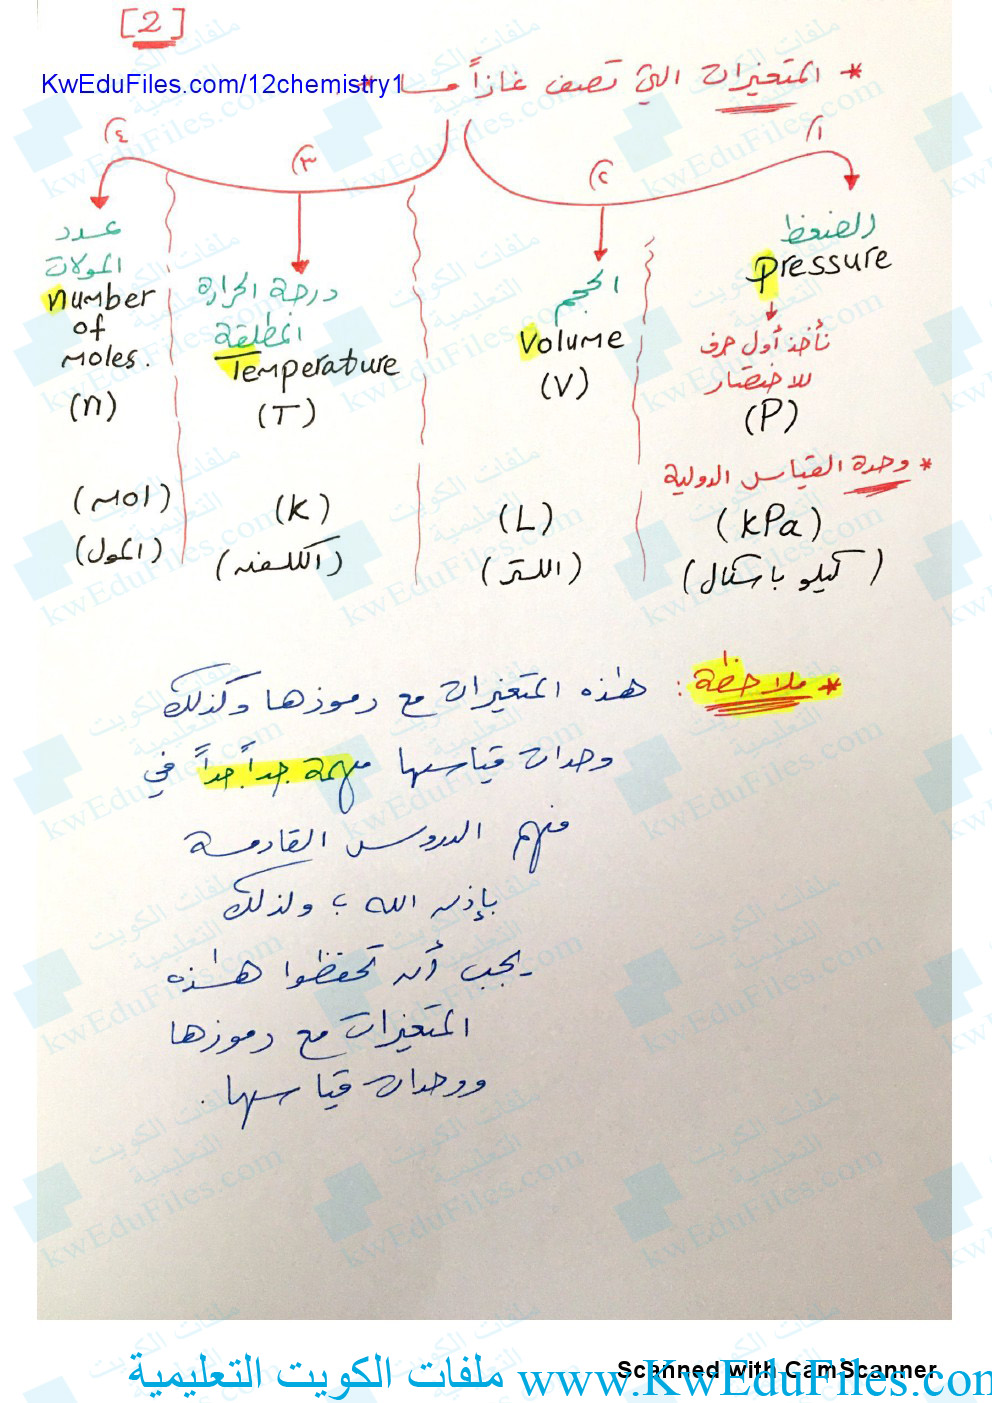 [2]
* المتغيرات التي تصف غازاً مـا *
KwEduFiles.com/12chemistry1
١)
٢)
٣)
٤)
الضغط
Pressure
نأخذ أول حرف
للاختصار
(P)
* وحدة القياس الدولية
(kPa)
(كيلو باسكال)
الحجم
Volume
(V)
(L)
(اللتر)
درجة الحرارة
المطلقة
Temperature
(T)
(K)
(الكلفن)
عدد
المولات
number
of
moles.
(n)
(mol)
(المول)
* ملاحظة : هذه المتغيرات مع رموزها وكذلك
وحدات قياسها مهمة جداً جداً في
فهم الدروس القادمة
بإذن الله ، ولذلك
يجب أن تحفظوا هذه
المتغيرات مع رموزها
ووحدات قياسها .
Scanned with CamScanner
ملفات الكويت التعليمية www.KwEduFiles.com